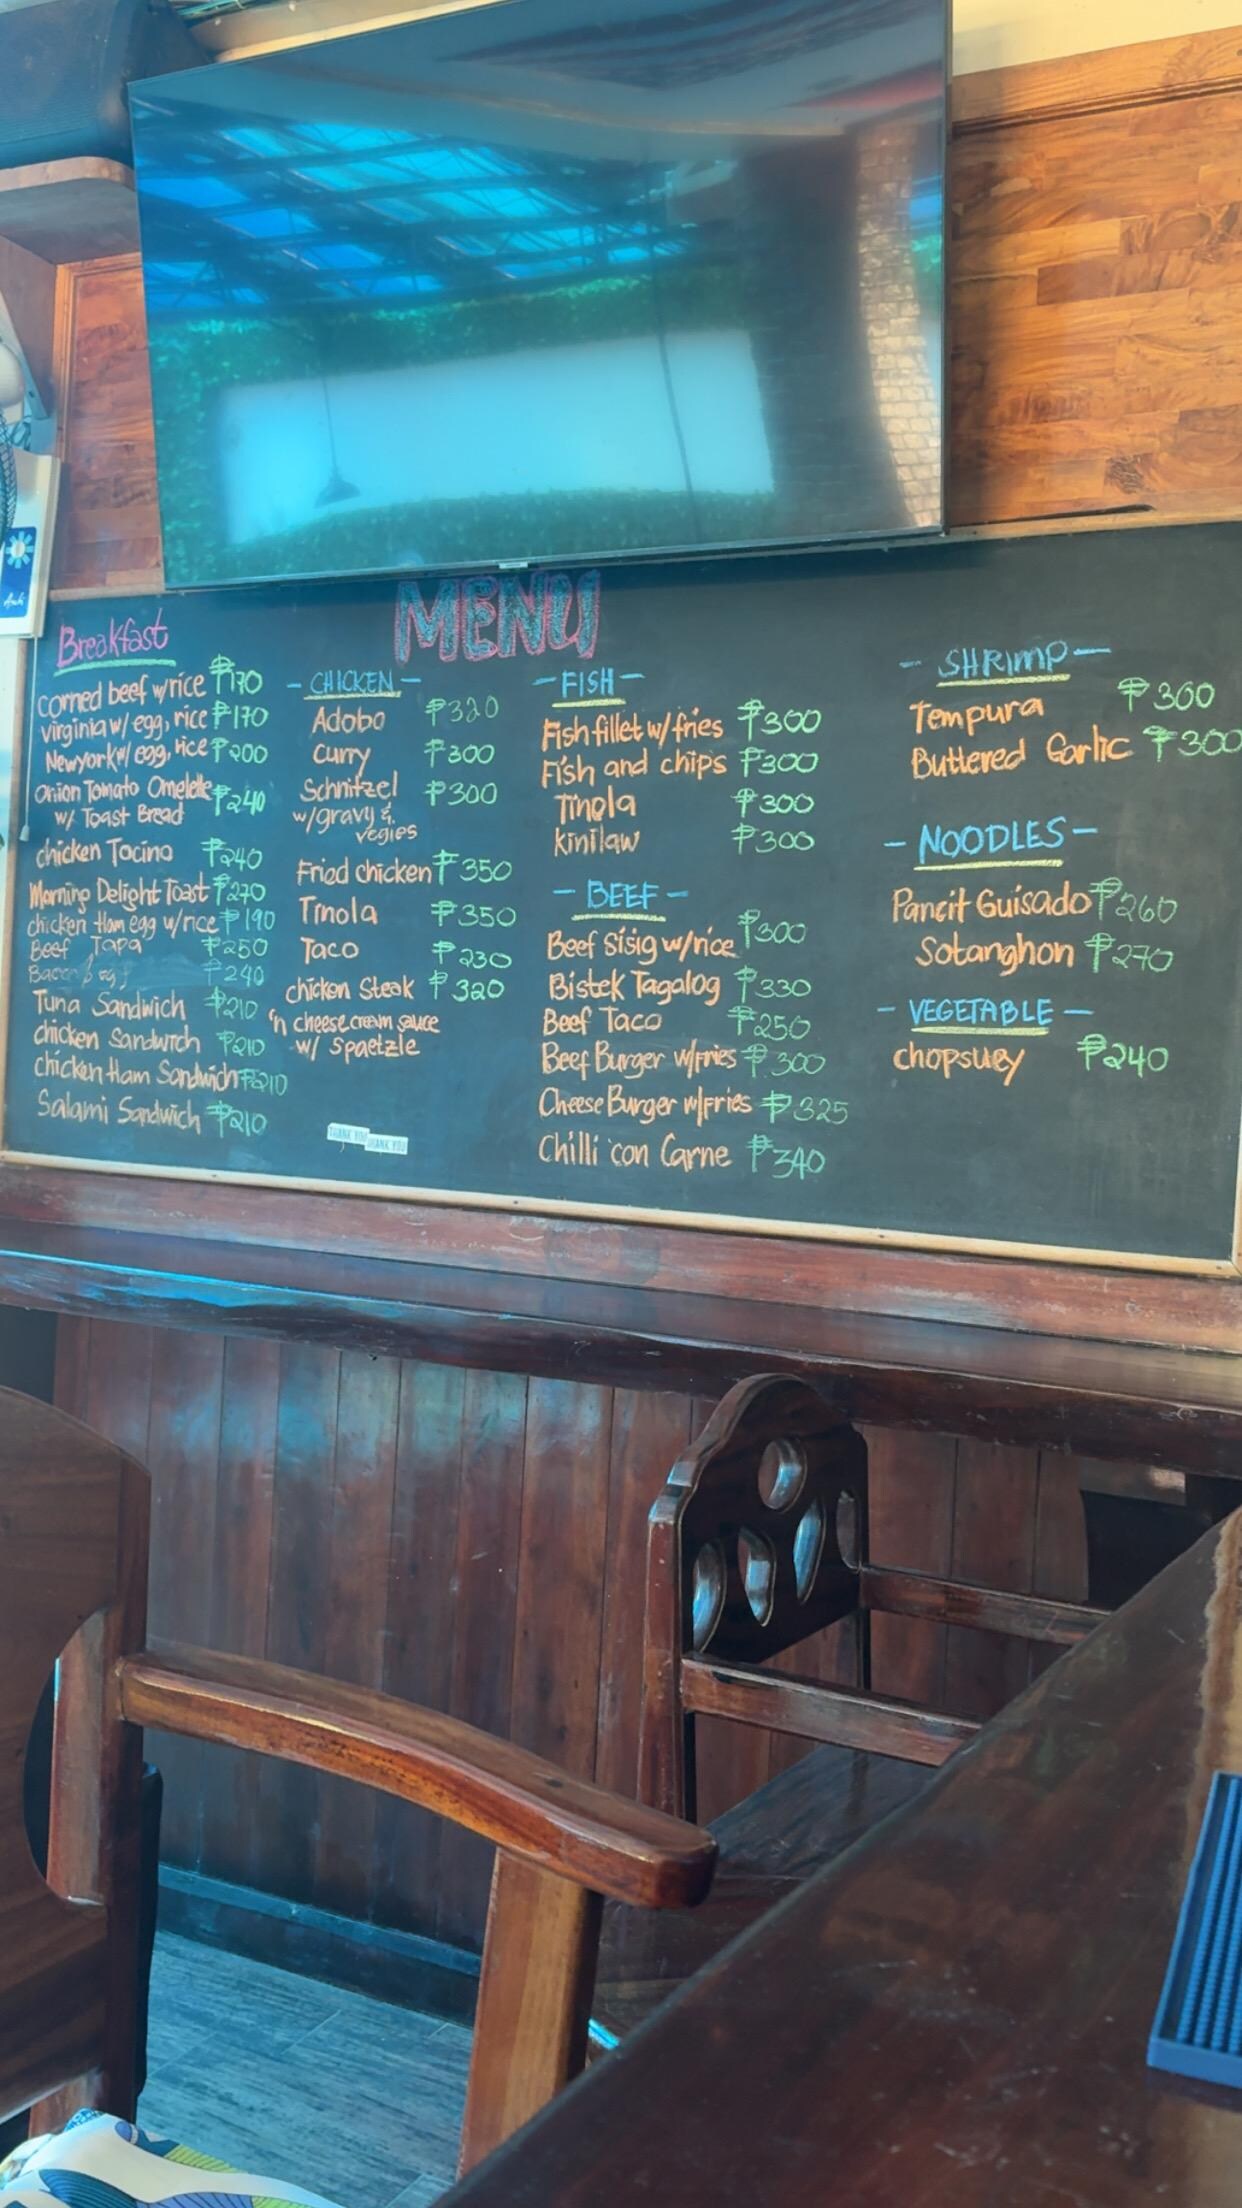 MENU
Breakfast
corned beef w/rice ₱170
virginia w/ egg, rice ₱170
Newyork w/ egg, rice ₱200
Onion Tomato Omelette ₱240
w/ Toast Bread
chicken Tocino ₱240
Morning Delight Toast ₱270
chicken Ham egg w/rice ₱190
Beef Tapa ₱250
₱240
Tuna Sandwich ₱210
chicken Sandwich ₱210
chicken Ham Sandwich ₱210
Salami Sandwich ₱210
- CHICKEN -
Adobo ₱320
Curry ₱300
Schnitzel ₱300
w/gravy &
vegies
Fried chicken ₱350
Tinola ₱350
Taco ₱230
chicken Steak ₱320
'n cheese cream sauce
w/ spaetzle
THANK YOU
THANK YOU
- FISH -
Fish fillet w/fries ₱300
Fish and chips ₱300
Tinola ₱300
kinilaw ₱300
- BEEF -
Beef Sisig w/rice ₱300
Bistek Tagalog ₱330
Beef Taco ₱250
Beef Burger w/fries ₱300
Cheese Burger w/Fries ₱325
Chilli con Carne ₱340
- SHRIMP -
Tempura ₱300
Buttered Garlic ₱300
- NOODLES -
Pancit Guisado ₱260
Sotanghon ₱270
- VEGETABLE -
chopsuey ₱240